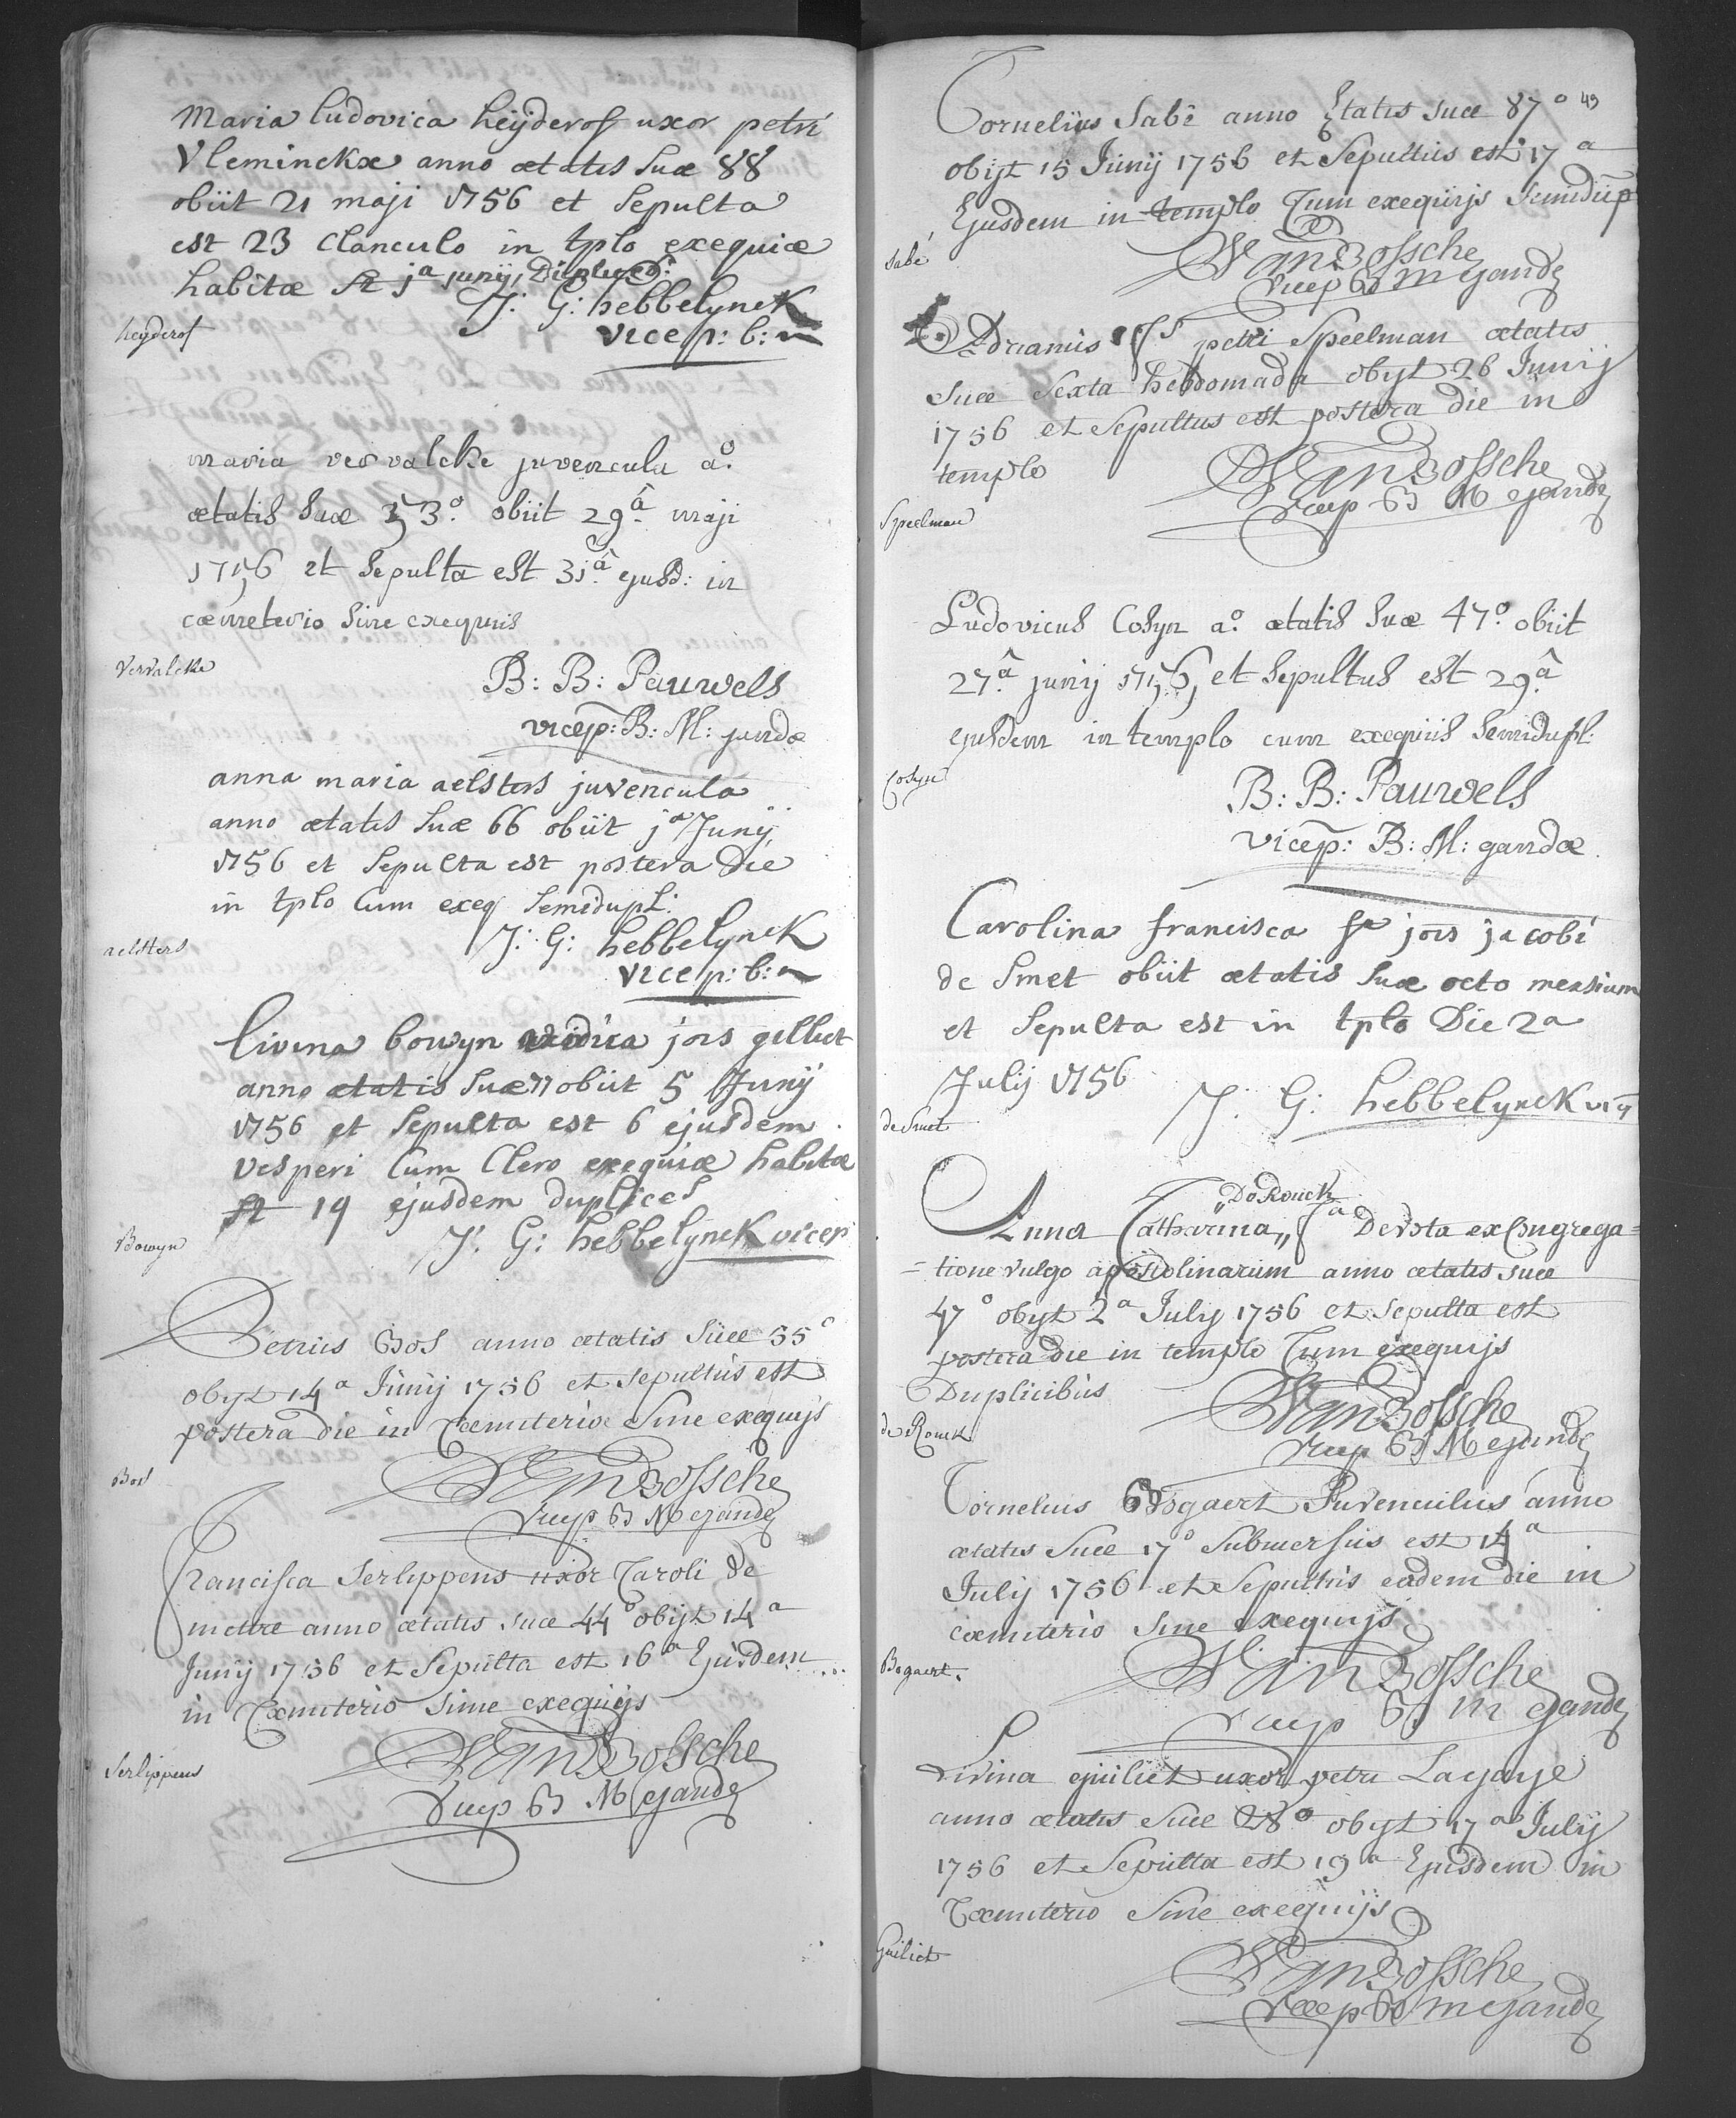 Maria ludovica heyderof uxor petri
Vleminckx anno ætatis suæ 88
obiit 21 maji 1756 et sepulta
est 23 clanculo in tplo exequiæ
habitæ st ja junij,
J: G: hebbelynck
vicep: b: m
heyderof
maria vervalcke juvencula a°.
ætatis suæ 53°. obiit 29.â maji
1756 et sepulta est 31.â ejusd: in
cæmeterio sine exequiis
Vervalcke
B: B: Pauwels
vicep: B: M: gandæ
anna maria aelsters juvencula
anno ætatis suæ 66 obiit ja Junij
1756 et sepulta est postera die
in tplo cum exeq semidupl:
J: G: hebbelynck
vicep: b: m
aelsters
livina bowyn vidua jois gilliet
anno ætatis suæ 77 obiit 5 Junij
1756 et sepulta est 6 ejusdem
vesperi cum clero exequiæ habitæ
st 19 ejusdem duplices
J: G: hebbelynck vicep
Bowyn
Petrus Bos anno ætatis suæ 55°
obijt 14a Junij 1756 et sepultus est
postera die in Cœmiterio sine exequijs
Bos
VandBossche
vicep B M gandę
Francisca Serlippens uxor Caroli de
mettre anno ætatis suæ 44° obijt 14a
Junij 1756 et sepulta est 16a Ejusdem
in Cœmiterio sine exequijs
Serlippens
VandBossche
vicep B M gandę
49
Cornelius Sabé anno Etatis suæ 87°
obijt 15 Junij 1756 et sepultus est 17a
Ejusdem in templo Cum exequijs semidup
sabé
VandBossche
vicep B M gandę
Adrianus fs petri Speelman ætatis
suæ sexta hebdomada obijt 26 Junij
1756 et sepultus est postera die in
templo
VandBossche
vicep B M gandę
Speelman
Ludovicus Cosyn a°. ætatis suæ 47° obiit
27.â junij 1756, et sepultus est 29.â
ejusdem in templo cum exequiis semidupl:
Cosyn
B: B: Pauwels
vicep: B: M: gandæ
Carolina francisca fa jois jacobi
de smet obiit ætatis suæ octo mensium
et sepulta est in tplo Die 2a
Julij 1756
J: G: hebbelynck
de Smet
DeRouck
Anna Catharina,, fa Devota ex Congrega=
=tione vulgo apostolinarum anno ætatis suæ
47° obijt 2a July 1756 et sepulta est
postera die in templo Cum exequijs
Duplicibus
VandBossche
vicep B M gandę
de Rouck
Cornelius Bogaert Juvenculus anno
ætatis suæ 17° submersus est 14a
July 1756 et sepultus eadem die in
cœmiterio sine exequijs
Bogaert.
VandBossche
vicep B M gandę
Livina guiliet uxor petri Laganje
anno ætatis suæ 28° obijt 17a July
1756 et sepulta est 19a Ejusdem in
Cœmiterio sine exequijs
Guiliet
VandBossche
vicep B M gandę